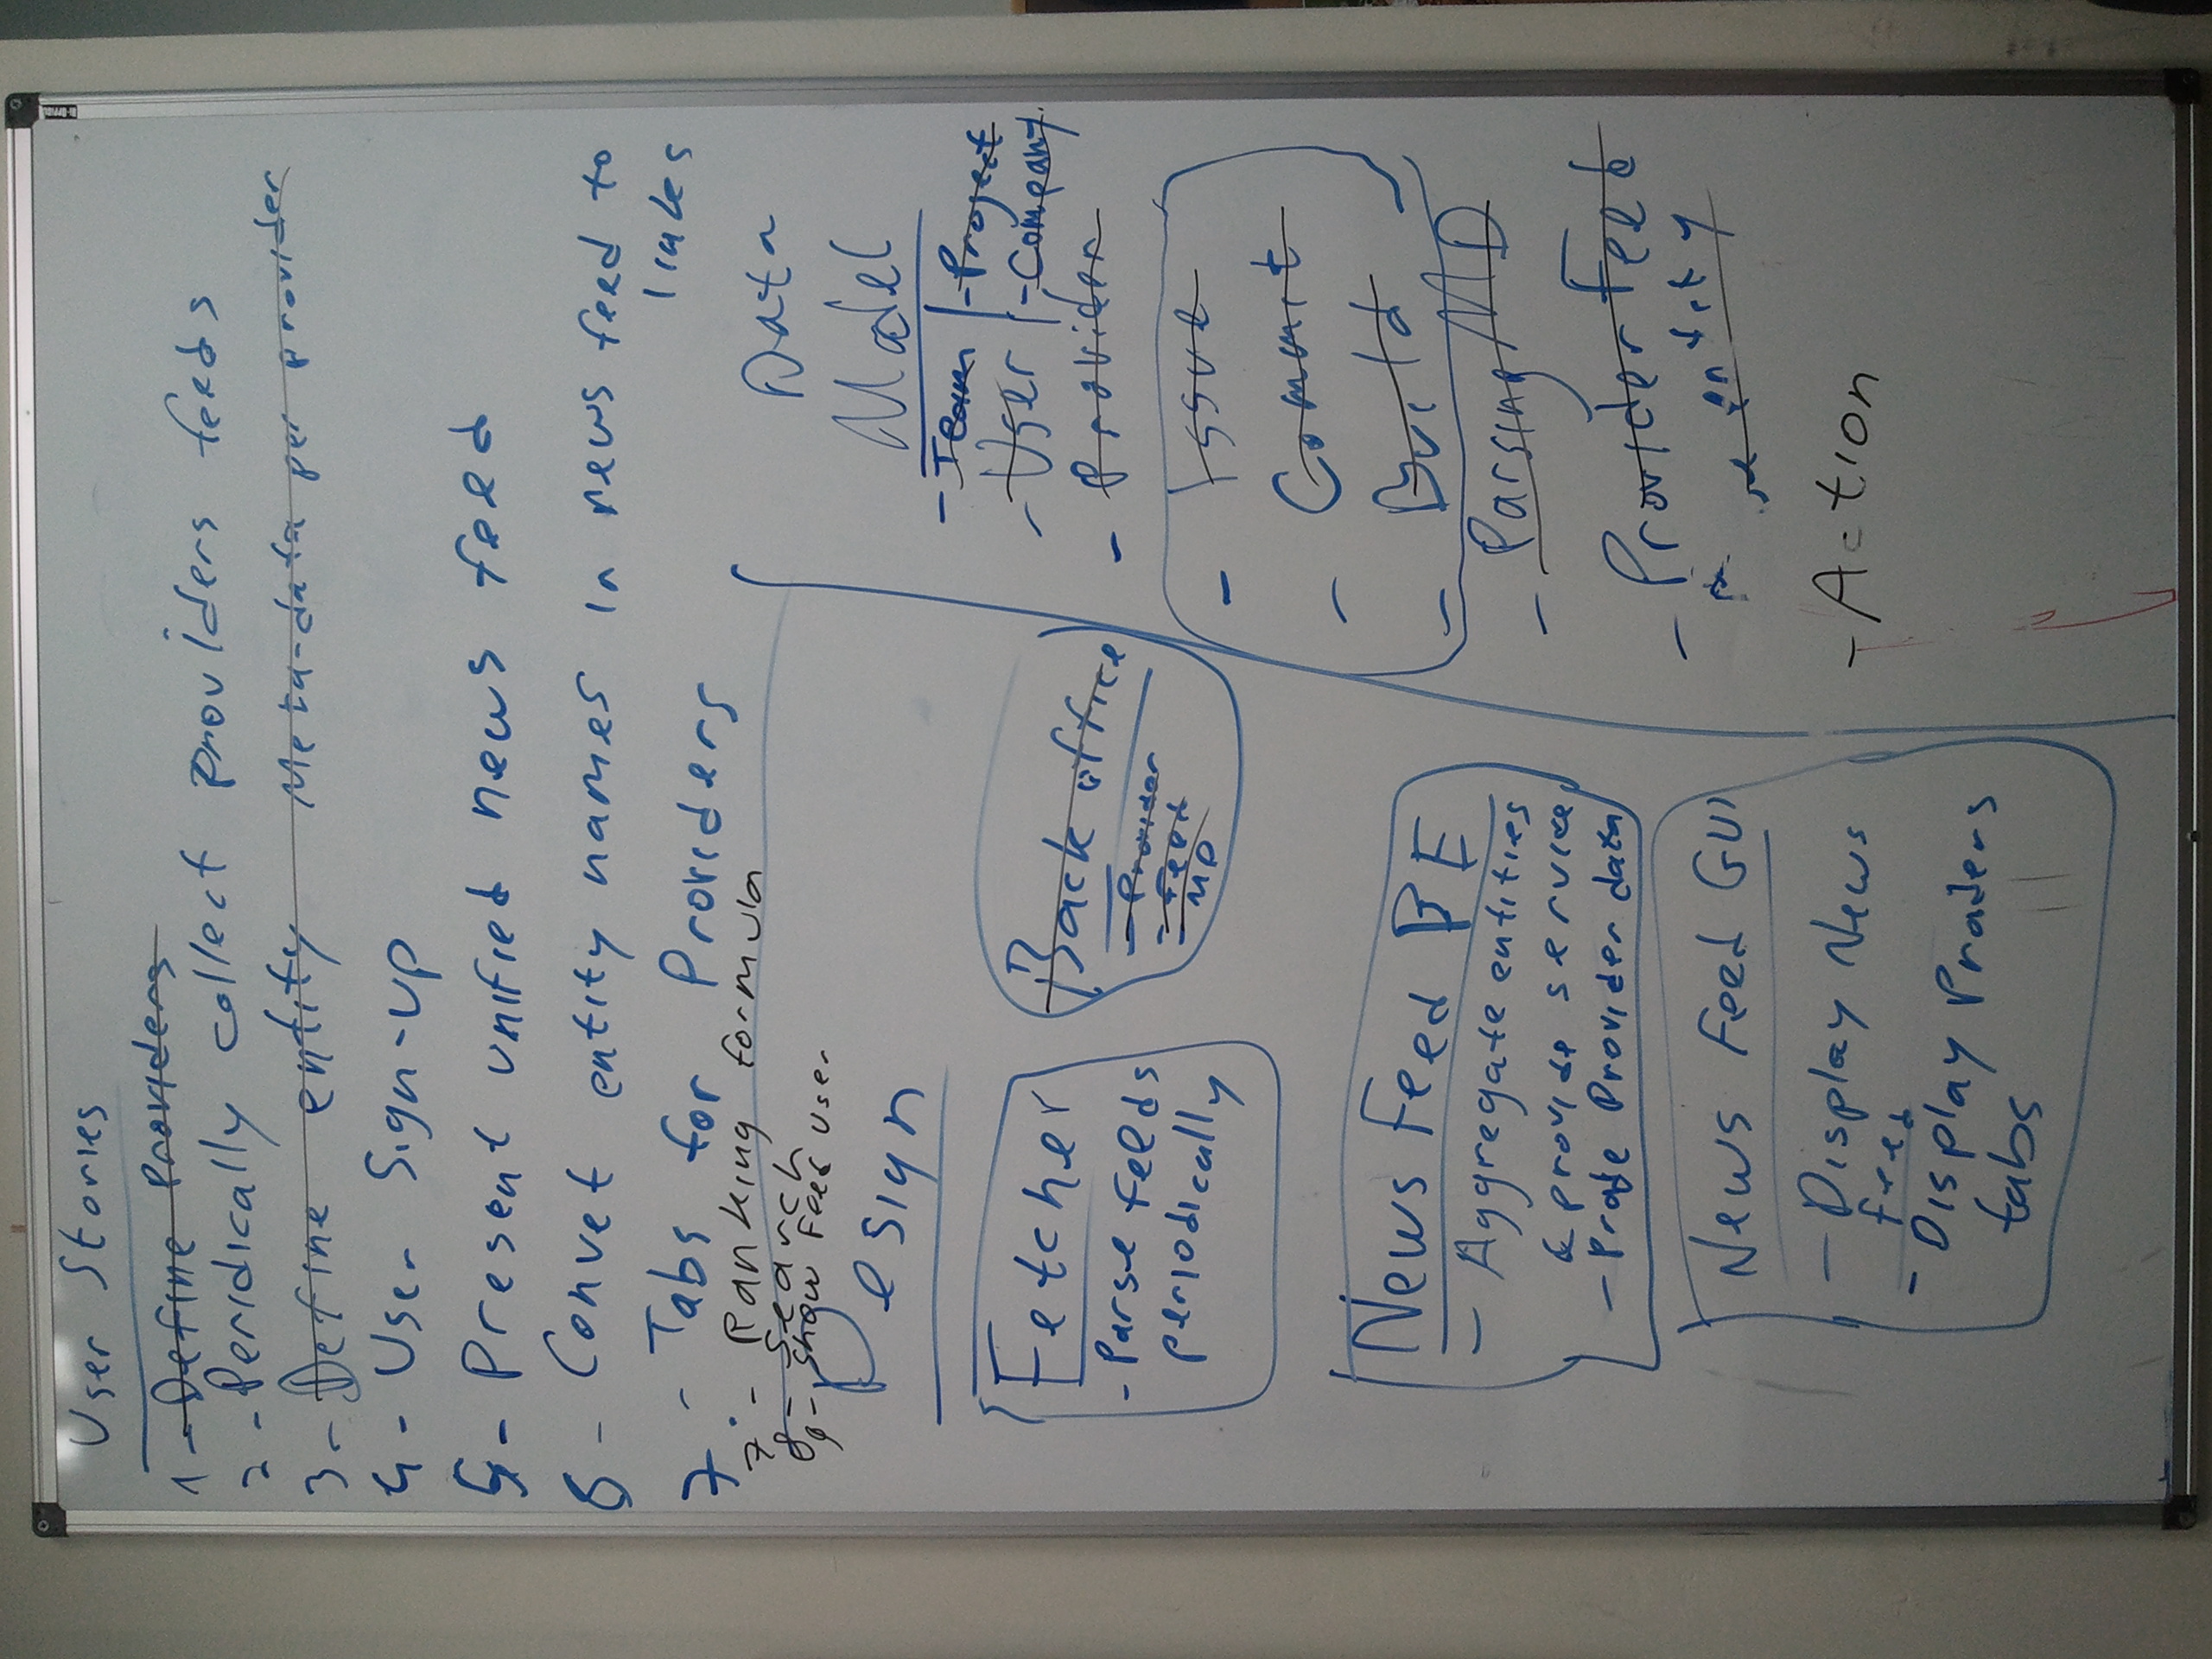 User Stories
1 - Define Providers
2 - Peridically collect providers feeds
3 - Define entity Meta-data per provider
4 - User Sign-up
5 - Present unified news feed
6 - Convet entity names in news feed to
links
7 - Tabs for Providers
7 - Ranking formula
8 - Search
9 - Show Feed User
Design
Fetcher
- Parse feeds
periodically
Back office
- Provider
- Feed
MD
News Feed BE
- Aggregate entities
& provide service
- Provider data
News Feed GUI
- Display News
feed
- Display
tabs
Data
Model
- Team | - Project
- User | - Company
- Provider
- Issue
- Commit
- Build
- Parsing MD
- Provider Feed
entity
- Action